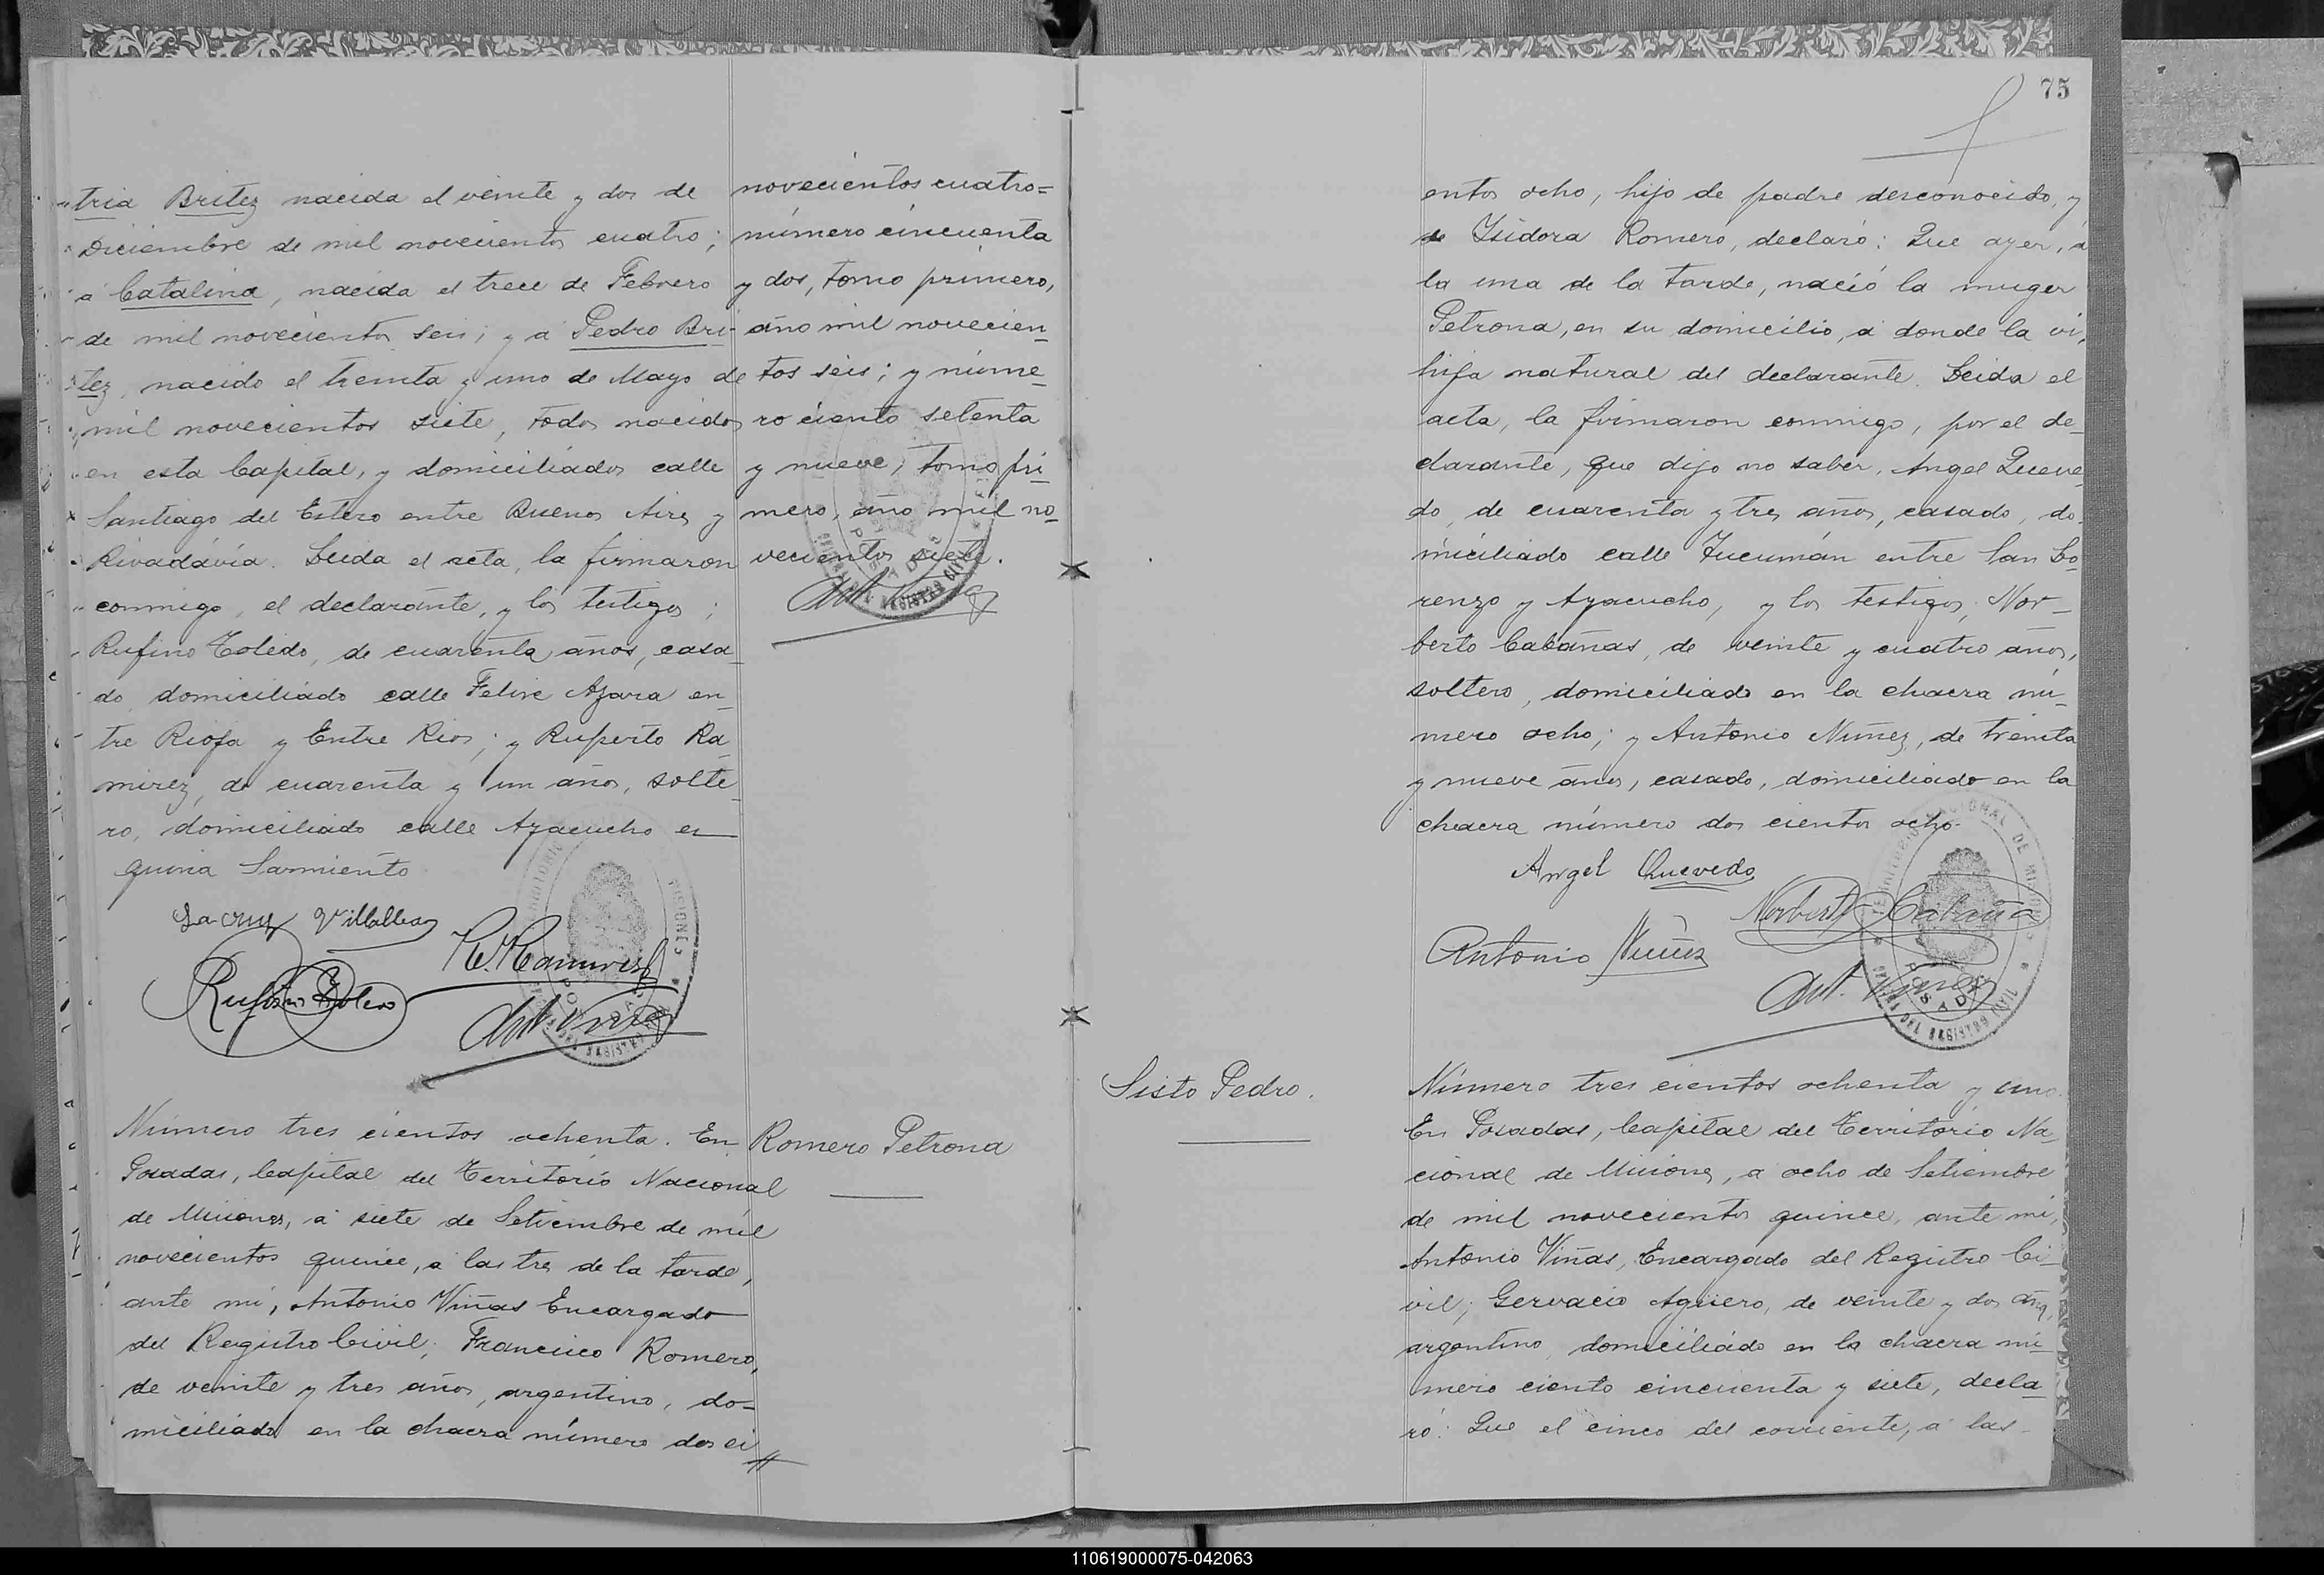 tria Britez nacida el veinte y dos de
Diciembre de mil novecientos cuatro;
a Catalina, nacida el trece de Febrero
de mil novecientos seis; y a Pedro Bri-
tez, nacido el treinta y uno de Mayo de
mil novecientos siete, todos nacidos
en esta Capital, y domiciliados calle
Santiago del Estero entre Buenos Aires y
Rivadávia. Leida el acta, la firmaron
conmigo, el declarante, y los testigos;
Rufino Toledo, de cuarenta años, casa_
do, domiciliado calle Felix Azara en_
tre Rioja y Entre Rios; y Ruperto Ra_
mirez, de cuarenta y un años, solte_
ro, domiciliado calle Ayacucho es
quina Sarmiento
La cruz Villalba
R. Ramirez
Rufino Toledo
Ant. Viñas
novecientos cuatro=
número cincuenta
y dos, tomo primero,
año mil novecien_
tos seis; y núme_
ro ciento setenta
y nueve, tomo pri_
mero, año mil no_
vecientos siete.
Número tres cientos ochenta. En
Posadas, Capital del Territorio Nacional
de Misiones, a siete de Setiembre de mil
novecientos quince, a las tres de la tarde,
ante mi, Antonio Viñas Encargado
del Registro Civil; Francisco Romero,
de veinte y tres años, argentino, do-
miciliado en la chacra número dos ci
Romero Petrona
75
entos ocho, hijo de padre desconocido, y
de Isidora Romero, declaró: Que ayer, a
la una de la tarde, nació la muger
Petrona, en su domicilio, a donde la vi,
hija natural del declarante. Leida el
acta, la firmaron conmigo, por el de_
clarante, que dijo no saber, Angel Queve_
do, de cuarenta y tres años, casado, do_
miciliado calle Tucumán entre San Lo_
renzo y Ayacucho, y los testigos; Nor_
berto Cabañas, de veinte y cuatro años,
soltero, domiciliado en la chacra nú_
mero ocho; y Antonio Nuñez, de treinta
y nueve años, casado, domiciliado en la
chacra número dos cientos ocho.
Angel Quevedo
Norberto Cabaña
Antonio Nuñez
Ant. Viñas
Sisto Pedro.
Número tres cientos ochenta y uno.
En Posadas, Capital del Territorio Na_
cional de Misiones, a ocho de Setiembre
de mil novecientos quince, ante mi,
Antonio Viñas, Encargado del Registro Ci_
vil; Gervacio Agüero, de veinte y dos años,
argentino, domiciliado en la chacra nú_
mero ciento cincuenta y siete, decla_
ró: Que el cinco del corriente, a las
110619000075-042063